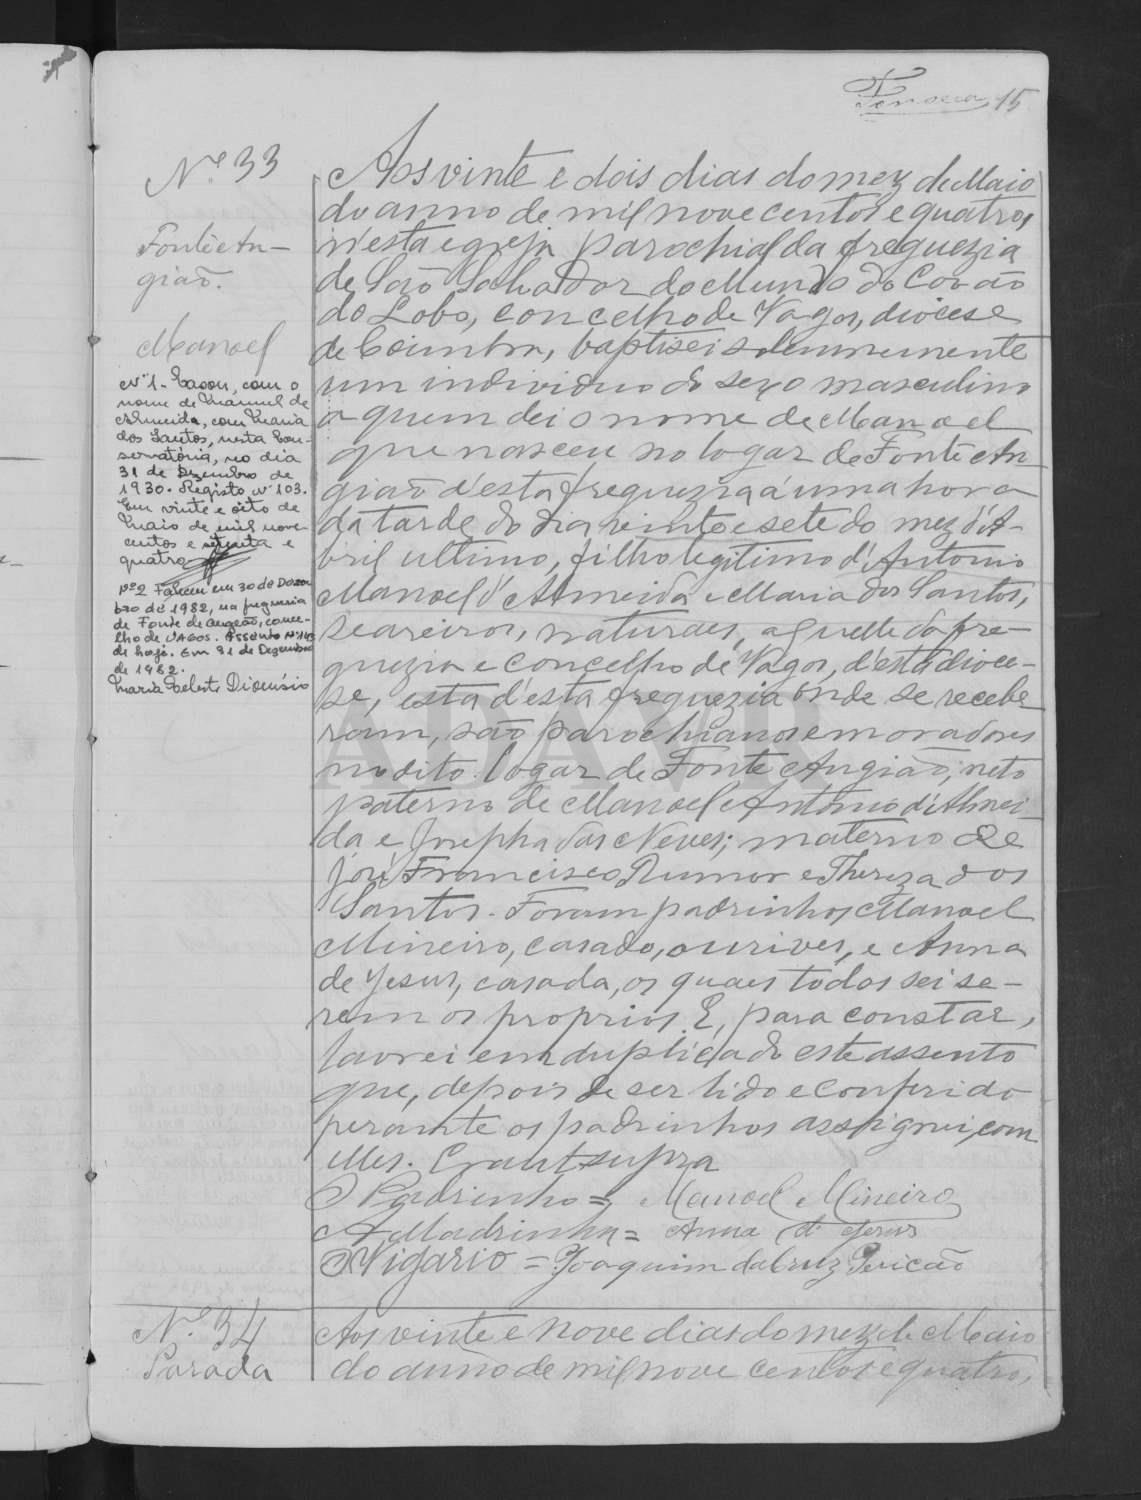 Fonseca 15
Nº 33
Fonte An-
gião.
Manoel
Nº 1 - Casou, com o
nome de Manuel de
Almeida, com Maria
dos Santos, nesta Con-
servatória, no dia
31 de Dezembro de
1930. Registo nº 103.
Em vinte e oito de
Maio de mil nove-
centos e setenta e
quatro
Nº 2 Faleceu em 30 de Dezem
bro de 1982, na freguesia
de Fonte de Angeão, conce-
lho de Vagos. Assento Nº
de hoje. Em 31 de Dezembro
de 1982.
Maria Celeste Dionísio
Aos vinte e dois dias do mez de Maio
do anno de mil nove centos e quatro,
n'esta egreja parochial da freguezia
de São Salvador do Mundo do Covão
do Lobo, concelho de Vagos, diocese
de Coimbra, baptisei solemnemente
um individuo do sexo masculino
a quem dei o nome de Manoel
que nasceu no logar de Fonte An
gião d'esta freguezia á uma hora
da tarde do dia vinte e sete do mez d'A-
bril ultimo, filho legitimo d'Antonio
Manoel d'Almeida e Maria dos Santos,
seareiros, naturaes, aquelle da fre-
guezia e concelho de Vagos, d'esta dioce-
se, esta d'esta freguezia onde se recebe
ram, são parochianos e moradores
no dito logar de Fonte Angião; neto
paterno de Manoel Antonio d'Almei-
da e Josepha das Neves; materno de
José Francisco Rumor e Thereza dos
Santos. Foram padrinhos Manoel
Mineiro, casado, ourives, e Anna
de Jesus, casada, os quaes todos sei se-
rem os proprios. E, para constar,
lavrei em duplicado este assento
que, depois de ser lido e conferido
perante os padrinhos assignei, com
elles. Era ut supra
O Padrinho = Manoel Mineiro
A Madrinha = Anna de Jesus
O Vigario = Joaquim da Cruz Pericão
Nº 34
Parada
Aos vinte e nove dias do mez de Maio
do anno de mil nove centos e quatro,
ADAVR